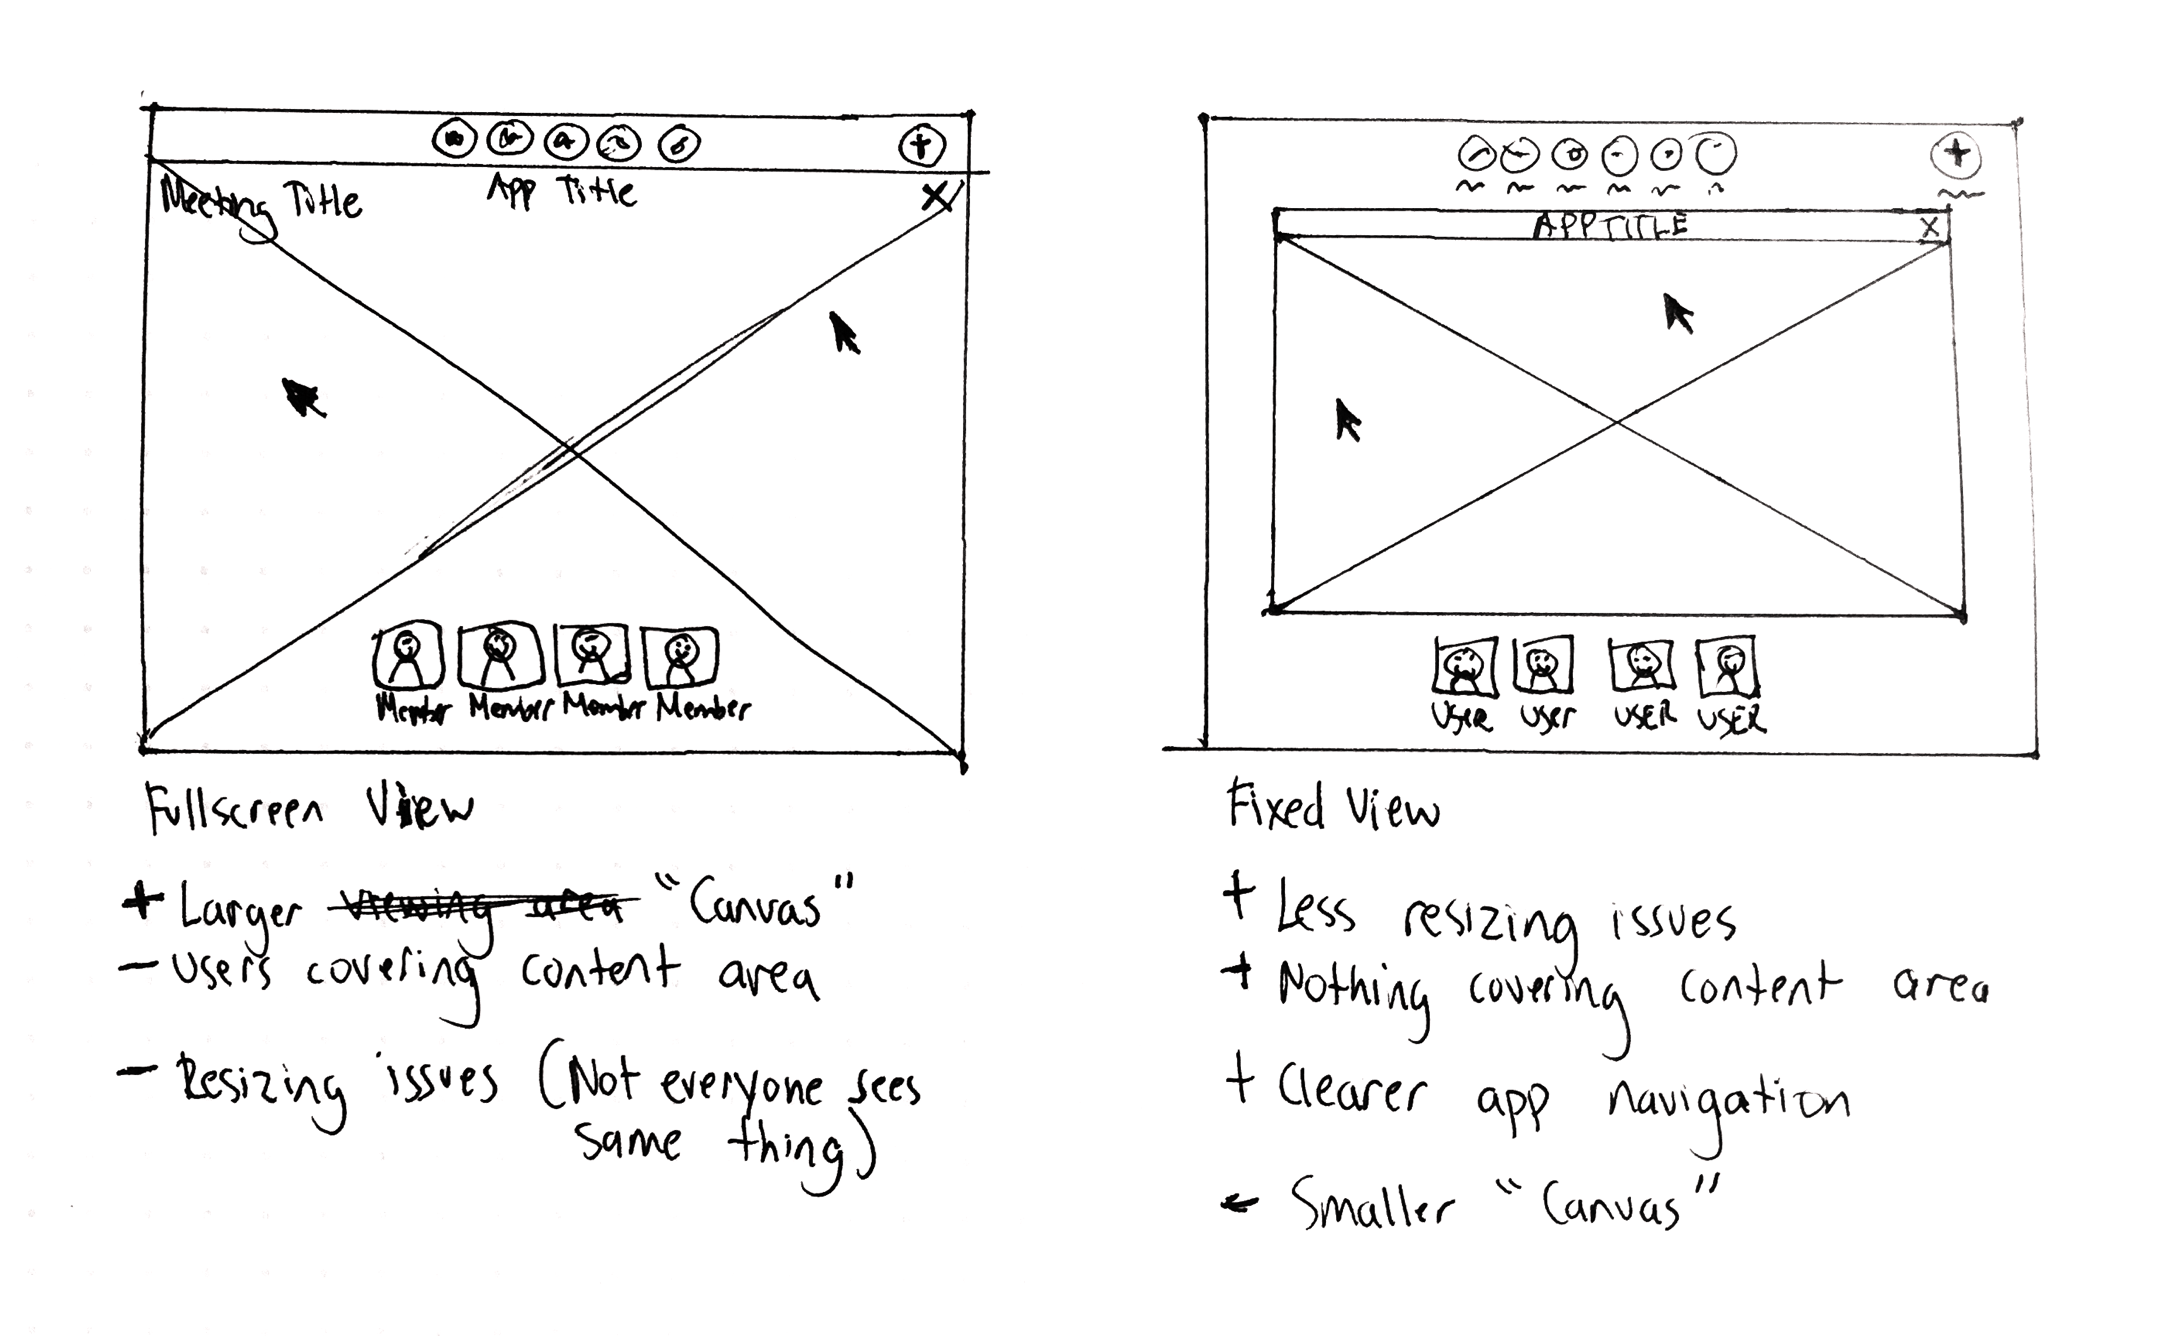 Meeting Title
App Title
X
Member Member Member Member
Fullscreen View
+ Larger viewing area "Canvas"
- Users covering content area
- Resizing issues (Not everyone sees
same thing)
APP TITLE
X
USER User USER USER
Fixed View
+ Less resizing issues
+ Nothing covering content area
+ Clearer app navigation
- Smaller "Canvas"